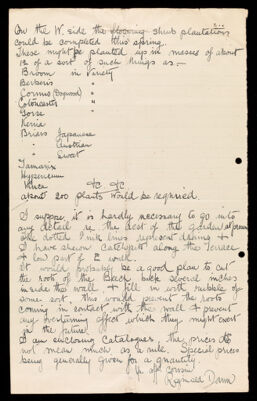 2...
On the W. side the flowering shrub plantations
could be completed this spring.
These might be planted up in masses of about
12 of a sort of such things as:-
Broom in Variety
Berberis "
Cornus (Dogwood) "
Cotoneaster "
Gorse "
Kerria
Briars Japanese
" Austrian
" Sweet
Tamarix
Hypericum
&c &c
about 200 plants would be required.
I suppose it is hardly necessary to go into
any detail re the rest of the garden at present
the dotted pink lines represent drains &
I have shewn catchpits along the Terrace
& low part of E. walk.
It would probably be a good plan to cut
the roots of the Beach back several inches
inside the wall & fill in with rubble of
some sort, this would prevent the roots
coming in contact with the wall & prevent
any overturning effect which they might exert
in the future.
I am enclosing Catalogues, the prices do
not mean much as a rule. Special prices
being generally given for a quantity.
Reginald Dann